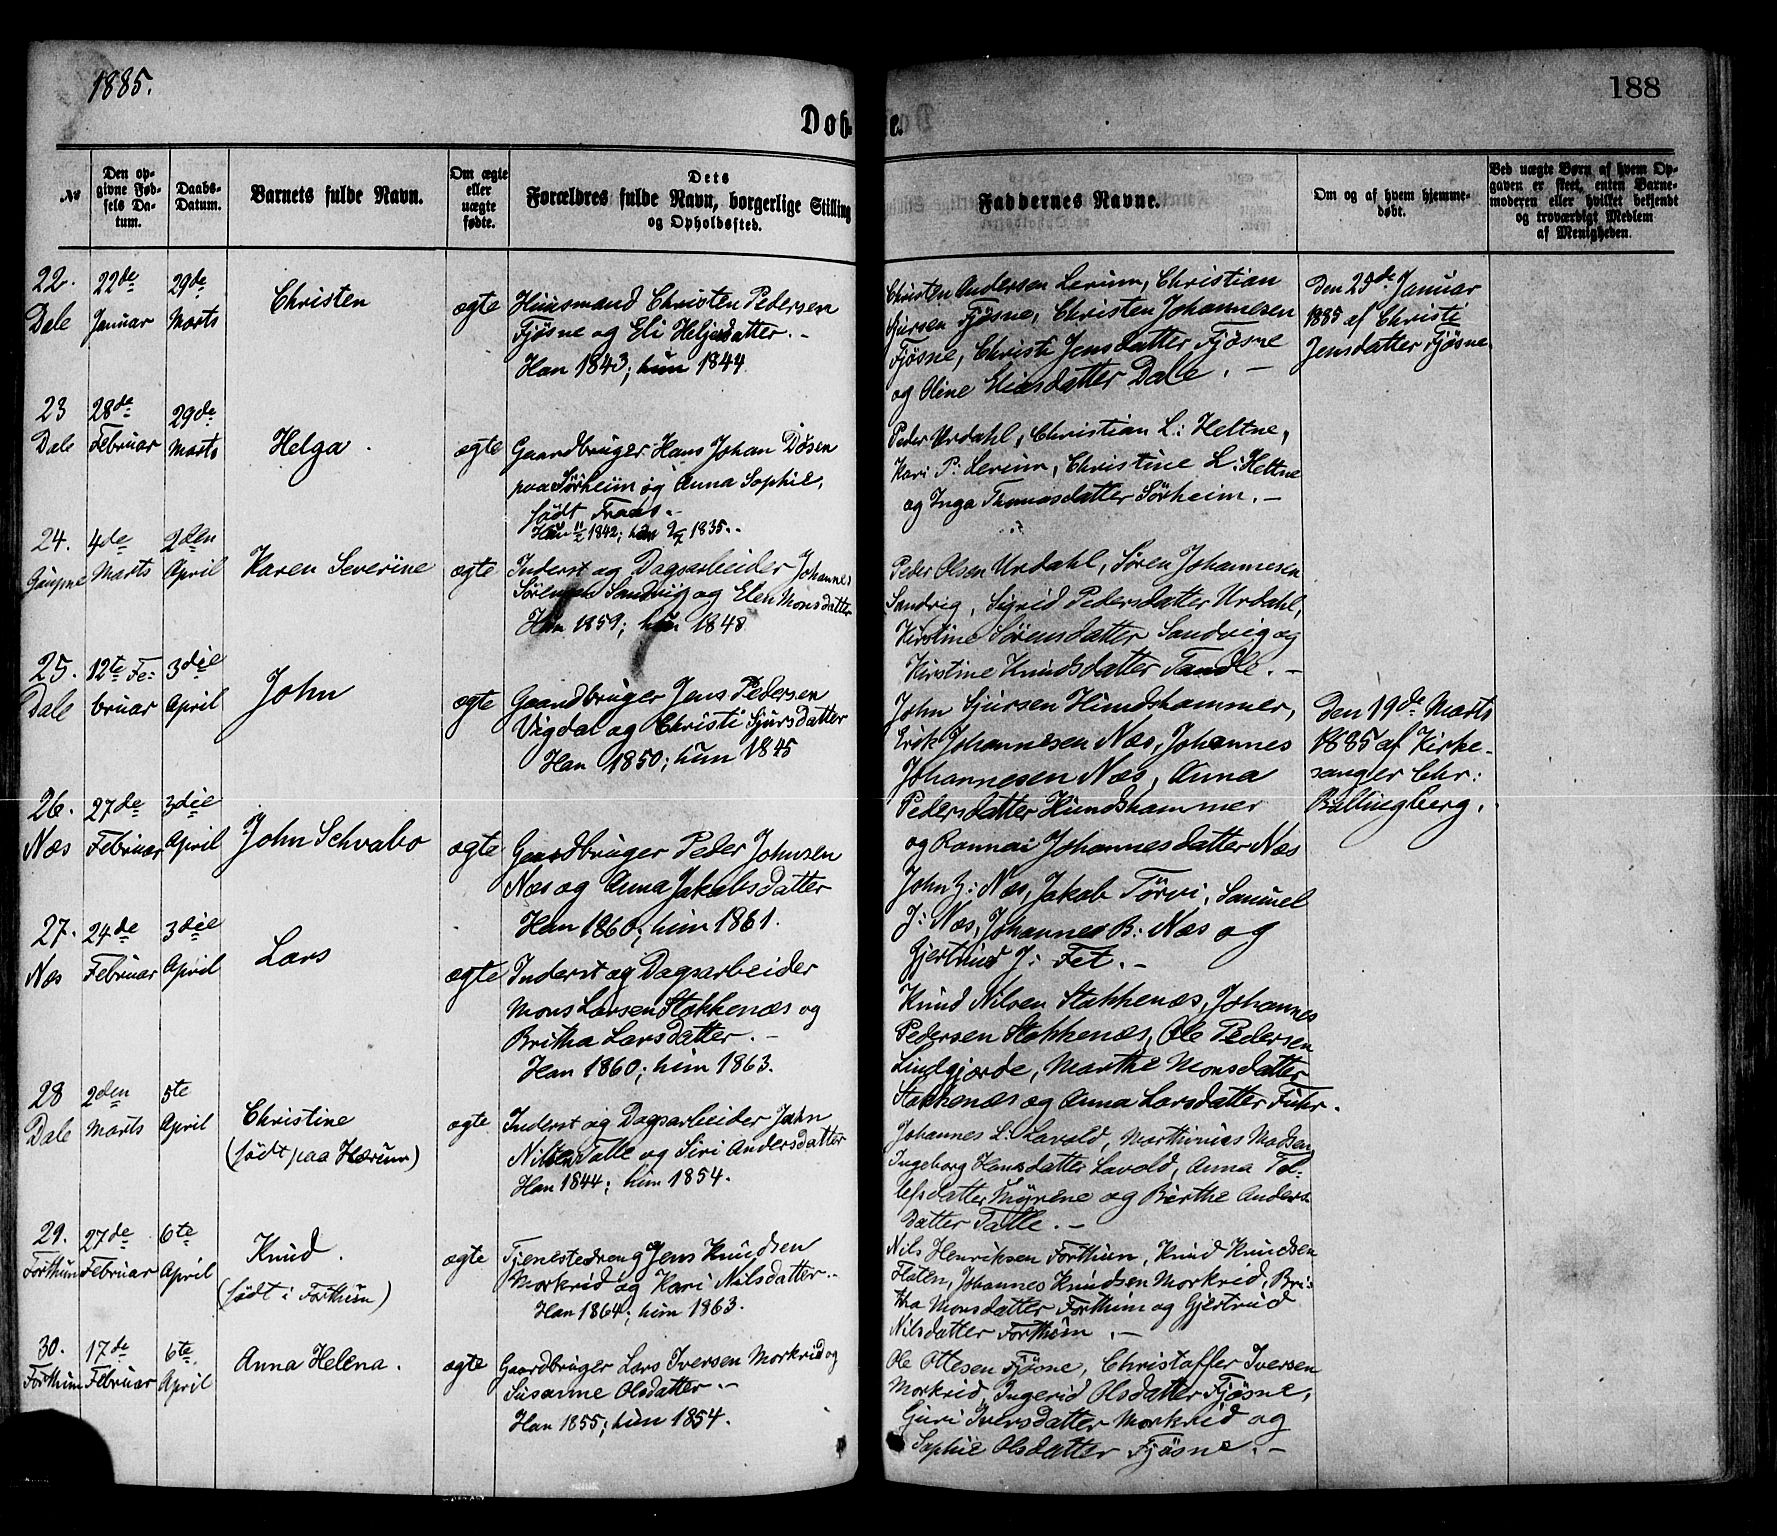 1885.
188
Dob
te.
No
Den op-
givne Fød-
sels Da-
tum.
Daabs-
Datum.
Barnets fulde Navn.
Om ægte
eller
uægte
fødte.
Dets
Forældres fulde Navn, borgerlige Stilling
og Opholdssted.
Faddernes Navne.
Om og af hvem hjemme-
døbt.
Ved uægte Børn af hvem Op-
gaven er skeet, enten Barne-
moderen eller hvilket bekjendt
og troværdigt Medlem
af Menigheden.
22.
Dale
22de
Januar
29de
Marts
Christen
ægte
Huusmand Christen Pedersen
Fjøsne og Eli Heljesdatter.-
Han 1843; hun 1844
Christen Andersen Lerum, Christian
Sjursen Fjøsne, Christen Johannesen
Fjøsne, Christi Jensdatter Fjøsne
og Oline Eliasdatter Dale.-
Den 25de Januar
1885 af Christi
Jensdatter Fjøsne.
23
Dale
28de
Februar
29de
Marts
Helga.
ægte
Gaardbruger Hans Johan Døsen
paa Sørheim og Anna Sophie,
født Fraas.-
Han 1842; hun 1835.
Peder Urdahl, Christian L: Heltne,
Kari P: Lerum, Christine L: Heltne
og Inga Thomasdatter Sørheim.-
24.
Gaupne
4de
Marts
2den
April
Karen Severine
ægte
Inderst og Dagsarbeider Johannes
Sørensen Sandvig og Elen Monsdatter
Han 1859; hun 1848
Peder Olsen Urdahl, Søren Johannesen
Sandvig, Sigrid Pedersdatter Urdahl,
Kirstine Sørensdatter Sandvig og
Kirstine Knudsdatter Tandle.-
25.
Dale
12te Fe-
bruar
3die
April
John
ægte
Gaardbruger Jens Pedersen
Vigdal og Christi Sjursdatter
Han 1850; hun 1845
John Sjursen Hundshammer,
Erik Johannesen Næs, Johannes
Johannesen Næs, Anna
Pedersdatter Hundshammer
og Rannai Johannesdatter Næs
Den 19de Marts
1885 af Kirke-
sanger Chr:
Ballingberg.
26.
Næs
27de
Februar
3die
April
John Schvabo
ægte
Gaardbruger Peder Johnsen
Næs og Anna Jakobsdatter
Han 1860; hun 1861.
John J: Næs, Jakob Tørvi, Samuel
J: Næs, Johannes B: Næs og
Gjertrud J: Fet.-
27.
Næs
24de
Februar
3die
April
Lars
ægte
Inderst og Dagsarbeider
Mons Larsen Stokkenæs og
Britha Larsdatter.-
Han 1860; hun 1863.
Knud Nilsen Stokkenæs, Johannes
Pedersen Stokkenæs, Ole Pedersen
Lindgjorde, Marthe Monsdatter
Stokkenæs og Anna Larsdatter Fuhr.
28
Dale
2den
Marts
5te
April
Christine
(født paa Hærum)
ægte
Inderst og Dagsarbeider John
Nilsen Talle og Siri Andersdatter
Han 1844; hun 1854.
Johannes L: Lavold, Marthinus Madsen
Ingeborg Hansdatter Lavold, Anna Tol-
lefsdatter Myrene og Berthe Anders-
datter Talle.-
29.
Forthun
27de
Februar
6te
April
Knud.
(født i Forthun)
ægte
Tjenestedreng Jens Knudsen
Morkrid og Kari Nilsdatter.-
Han 1864; hun 1863.
Nils Henriksen Forthun, Knud Knudsen
Flaten, Johannes Knudsen Morkrid, Bri-
tha Monsdatter Forthun og Gjertrud
Nilsdatter Forthun.-
30.
Forthun
17de
Februar
6te
April
Anna Helena.
ægte
Gaardbruger Lars Iversen Morkrid og
Susanne Olsdatter.-
Han 1855; hun 1854.
Ole Ottesen Fjøsne, Christoffer Iversen
Morkrid, Ingerid Olsdatter Fjøsne,
Guri Iversdatter Morkrid og
Sophie Olsdatter Fjøsne.-